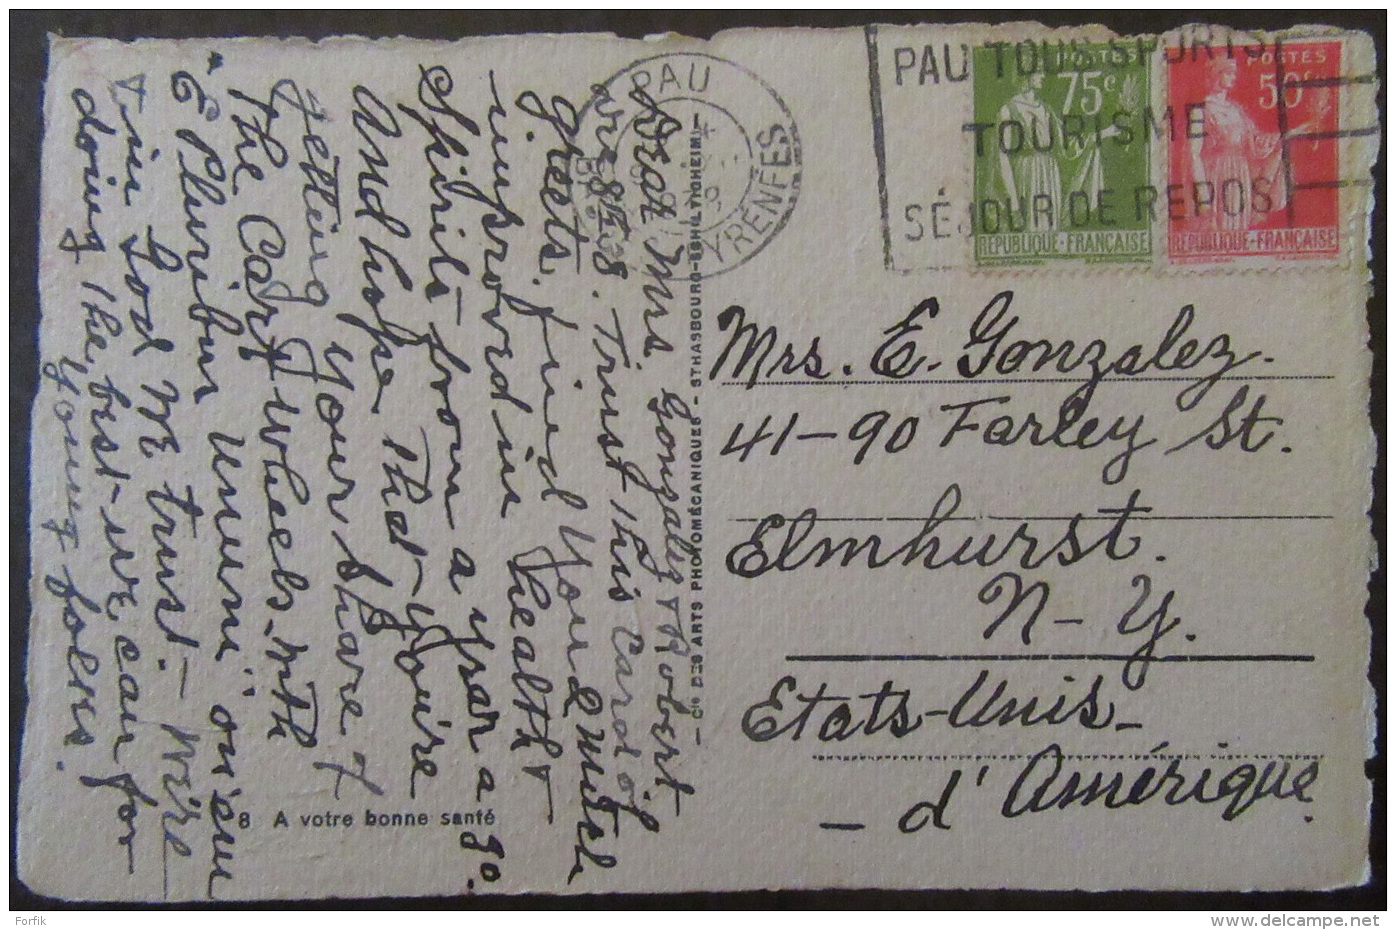 PAU TOUS SPORTS
TOURISME
SÉJOUR DE REPOS
PAU
PYRÉNÉES
POSTES
75c
REPUBLIQUE-FRANÇAISE
POSTES
50c
REPUBLIQUE-FRANÇAISE
Dear Mrs. Gonzalez & Robert
Trust this card of
greets. find you much
improved in health &
Spirits from a year ago.
And hope that you're
getting your share of
the Cart Wheels with
"E Pluribur Unum" on 'em
tin God we trust - We're
doing the best we can for
young folks.
8 A votre bonne santé
Cie DES ARTS PHOTOMÉCANIQUES - STRASBOURG-SCHILTIGHEIM
Mrs. E. Gonzalez.
41-90 Farley St.
Elmhurst.
N-Y.
Etats-Unis-
- d'Amérique.
Forfik
www.delcampe.net